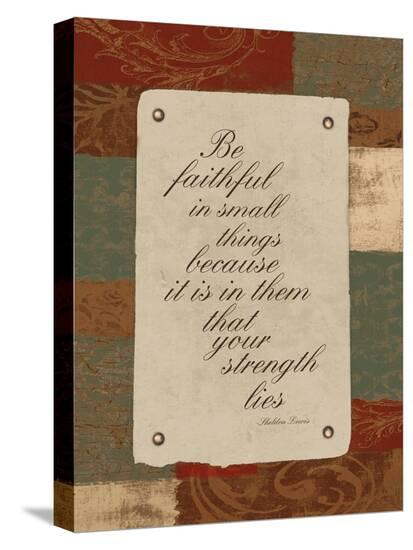 Be
faithful
in small
things
because
it is in them
that
your
strength
lies
-Sheldon Lewis